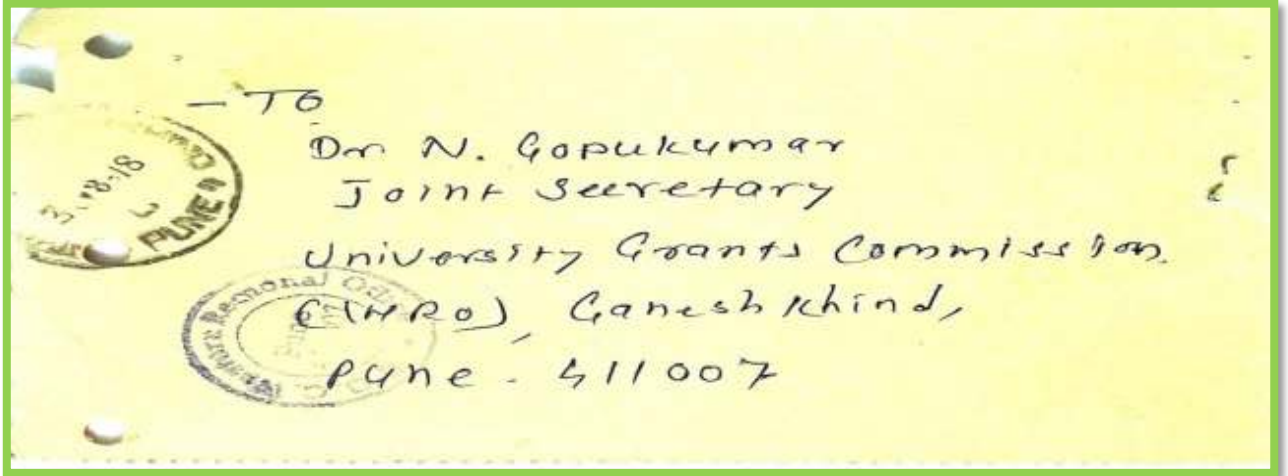 - TO
Dr N. Gopukumar
Joint Secretary
University Grants Commission
(WRO), Ganeshkhind,
Pune - 411007
PUNE
Regional